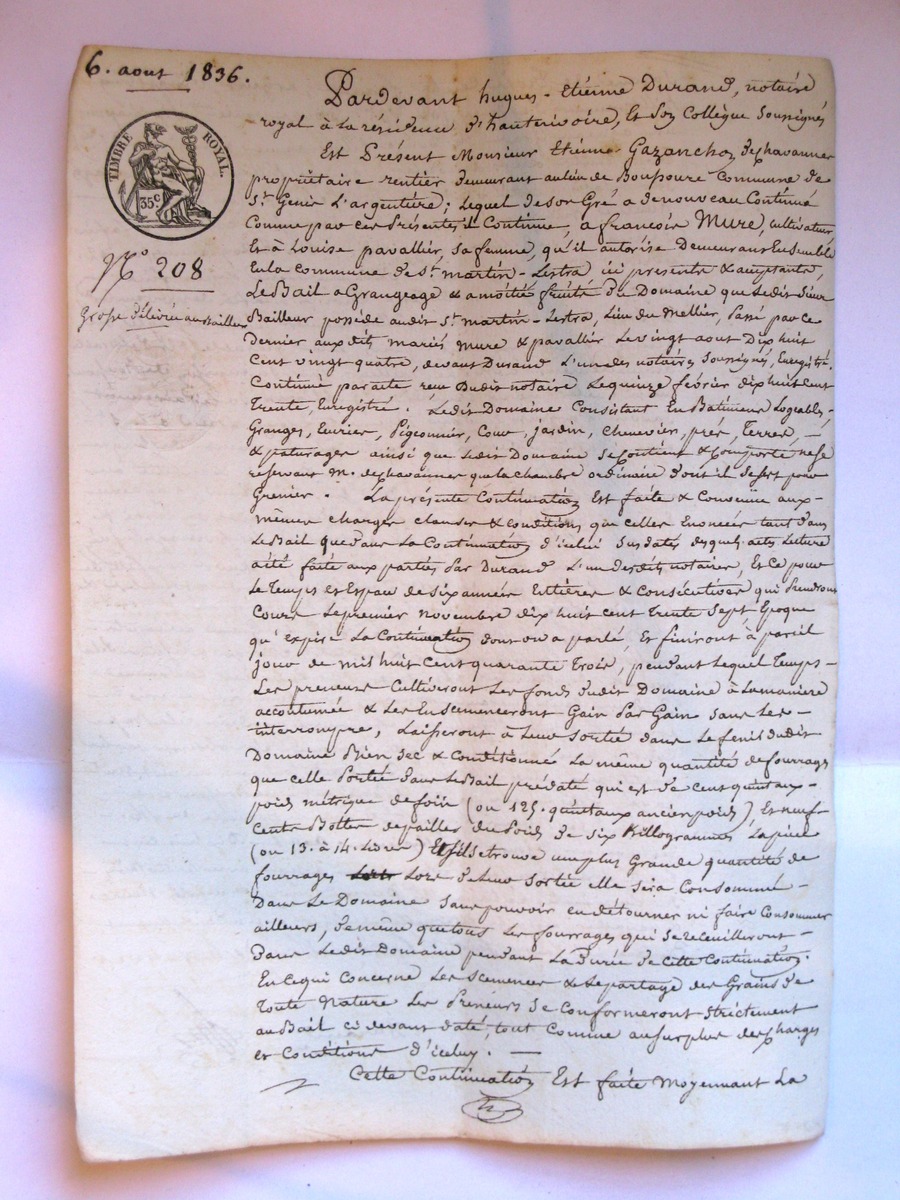 6. aout 1836.
TIMBRE ROYAL.
35c
N° 208
Grosse délivrée au Bailleur
Pardevant hugues-Etienne Durand, notaire
royal à la résidence d'hauterivoire, Et son Collègue soussignés
Est Présent Monsieur Etienne Gazanchon deschavanner
propriétaire rentier demeurant au lieu de Boupoure Commune de
St. Genis L'argentière; Lequel de son Gré a de nouveau Continué
Comme par ces Présentes il Continue, a françois Mure, cultivateur
Et à Louise pavallier, sa femme, qu'il autorise Demeurans Ensemble
En la commune de St. martin-Lestra ici présents & acceptants,
Le Bail a Grangeage & a moitié fruits Du Domaine que ledit sieur
Bailleur possède audit St. martin-Lestra, Lieu du Mellier, Passé par ce
Dernier aux dits mariés Mure & pavallier Le vingt aout Dix huit
Cent vingt quatre, devant Durand L'un des notaires soussignés, Enregistré.
Continué par acte reçu Dudit notaire Le quinze février dix huit cent
Trente, Enregistré. Ledit Domaine Consistant En Batimens Logeables,
Granges, Ecurier, Pigeonnier, Cour, jardin, Chenevier, prés, Terres, —
& paturages ainsi que ledit Domaine se Contient & Comporte ne se
réservant M. deschavanner que la chambre ordinaire dont il se sert pour
Grenier. La présente Continuation Est faite & Convenue aux-
mêmes charges clauses & conditions que celles Enoncées tant dans
Le Bail que dans La Continuation d'icelui susdatés desquels actes Lecture
a été faite aux parties Par Durand L'un desdits notaires, Et ce pour
Le Temps et Espace de six années Entières & Consécutives qui Prendront
Cours Le premier novembre dix huit cent Trente Sept, Epoque
qu'expire La Continuation dont on a parlé, Et finiront à pareil
jour de mil huit Cent quarante Trois, pendant Lequel Temps-
Les preneurs Cultiveront Les fonds dudit Domaine à La maniere
accoutumée & Les Ensemenceront Gain Par Gain sans Les-
interrompre, Laisseront à Leur Sortie dans Le fenil dudit
Domaine Bien Sec & Conditionné La même quantité de fourrages
que celle Portée dans Le Bail prédaté qui est de Cent quintaux-
poids métrique de foin (ou 125. quintaux ancien poids), Et neuf-
Cents Bottes de pailles du Poids de six Killogrammes La pièce
(ou 13. à 14. Livres) Et s'il se trouve une plus Grande quantité de
fourrages Lors de Leur Sortie elle sera Consommé-
Dans Le Domaine sans pouvoir en détourner ni faire Consommer
ailleurs, de même que tous Les fourrages qui se receuilleront-
Dans Ledit Domaine pendant La Durée de Cette Continuation.
En Ce qui Concerne Les Semences & Le partage des Grains de
Toute Nature Les Preneurs se Conformeront strictement
au Bail ci devant daté, tout Comme au surplus des charges
et Conditions d'iceluy. —
Cette Continuation Est faite Moyennant La